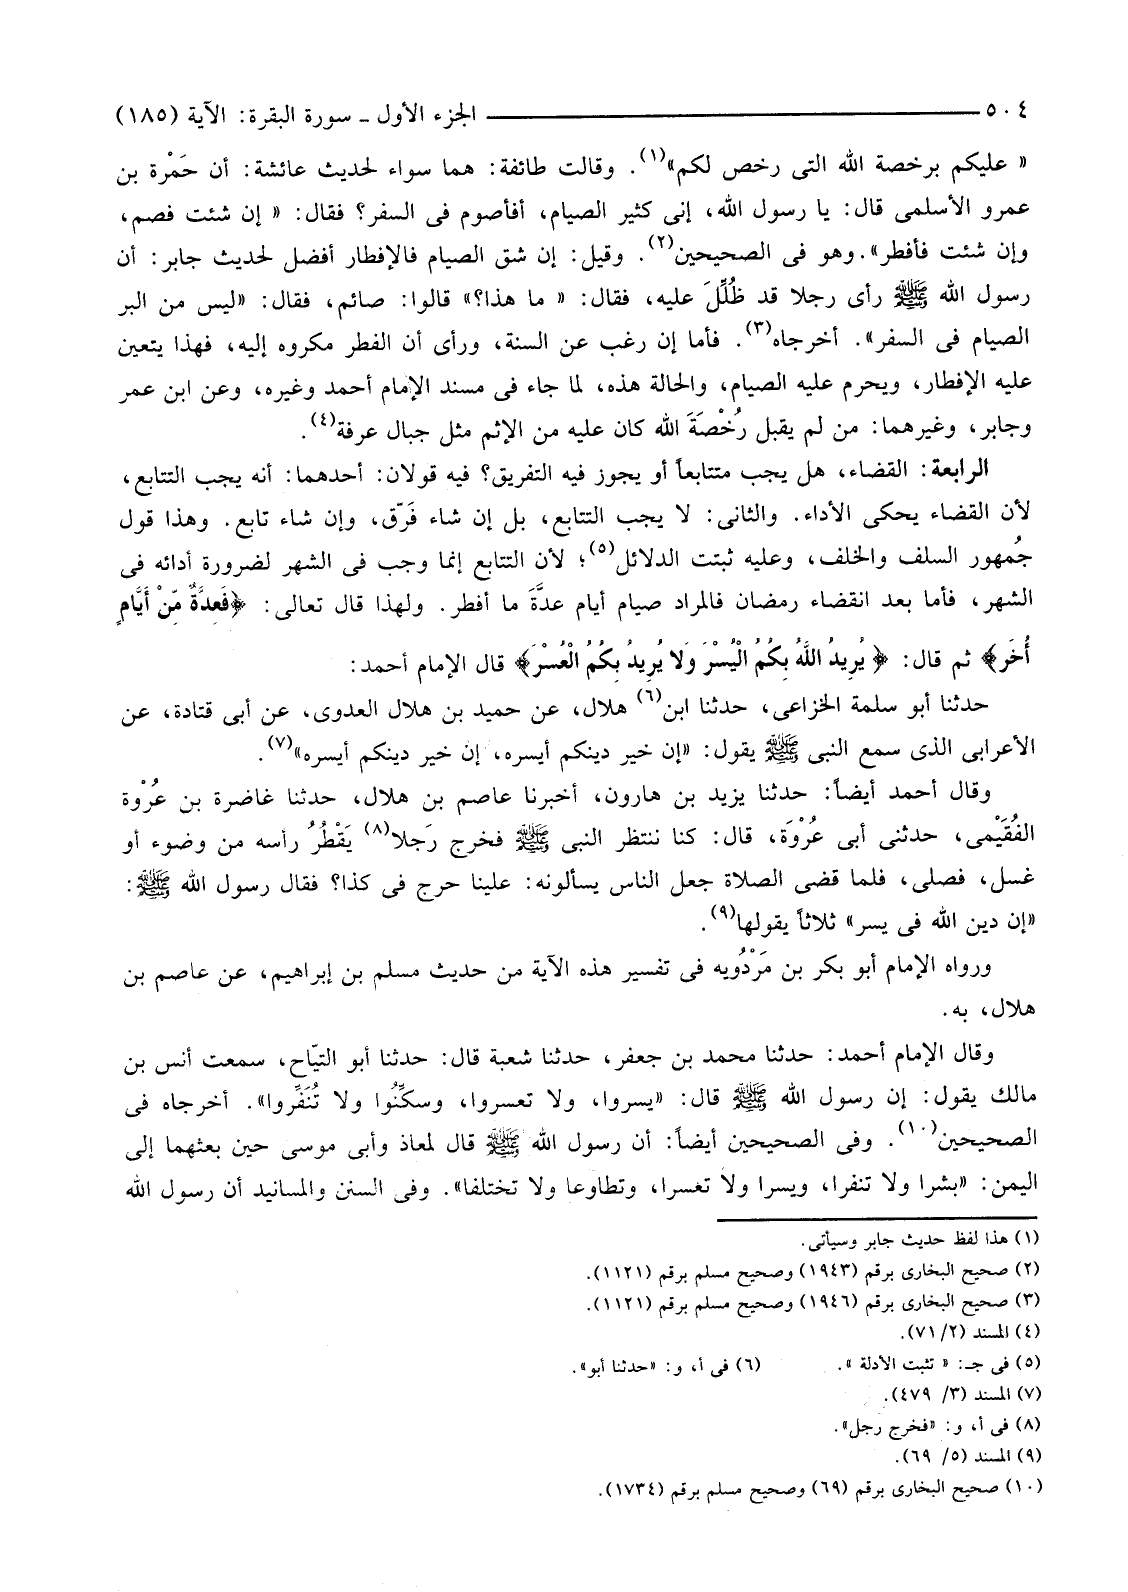 ٥٠٤ الجزء الأول ـ سورة البقرة: الآية (١٨٥)
« عليكم برخصة الله التى رخص لكم»(١). وقالت طائفة: هما سواء لحديث عائشة: أن حَمْزة بن
عمرو الأسلمى قال: يا رسول الله، إنى كثير الصيام، أفأصوم فى السفر؟ فقال: « إن شئت فصم،
وإن شئت فأفطر». وهو فى الصحيحين(٢). وقيل: إن شق الصيام فالإفطار أفضل لحديث جابر: أن
رسول الله ﷺ رأى رجلا قد ظُلِّلَ عليه، فقال: « ما هذا؟» قالوا: صائم، فقال: «ليس من البر
الصيام فى السفر». أخرجاه(٣). فأما إن رغب عن السنة، ورأى أن الفطر مكروه إليه، فهذا يتعين
عليه الإفطار، ويحرم عليه الصيام، والحالة هذه، لما جاء فى مسند الإمام أحمد وغيره، وعن ابن عمر
وجابر، وغيرهما: من لم يقبل رُخْصَةَ الله كان عليه من الإثم مثل جبال عرفة(٤).
الرابعة: القضاء، هل يجب متتابعاً أو يجوز فيه التفريق؟ فيه قولان: أحدهما: أنه يجب التتابع،
لأن القضاء يحكى الأداء. والثانى: لا يجب التتابع، بل إن شاء فَرّق، وإن شاء تابع. وهذا قول
جُمهور السلف والخلف، وعليه ثبتت الدلائل(٥)؛ لأن التتابع إنما وجب فى الشهر لضرورة أدائه فى
الشهر، فأما بعد انقضاء رمضان فالمراد صيام أيام عدَّةَ ما أفطر. ولهذا قال تعالى: ﴿فَعِدَّةٌ مِّنْ أَيَّامٍ
أُخَر﴾ ثم قال: ﴿ يُرِيدُ اللَّهُ بِكُمُ الْيُسْرَ وَلا يُرِيدُ بِكُمُ الْعُسْرَ﴾ قال الإمام أحمد:
حدثنا أبو سلمة الخزاعى، حدثنا ابن(٦) هلال، عن حميد بن هلال العدوى، عن أبى قتادة، عن
الأعرابى الذى سمع النبى ﷺ يقول: «إن خير دينكم أيسره، إن خير دينكم أيسره»(٧).
وقال أحمد أيضاً: حدثنا يزيد بن هارون، أخبرنا عاصم بن هلال، حدثنا غاضرة بن عُرْوة
الفُقَيْمى، حدثنى أبى عُرْوَة، قال: كنا ننتظر النبى ﷺ فخرج رَجلا(٨) يَقْطُرُ رأسه من وضوء أو
غسل، فصلى، فلما قضى الصلاة جعل الناس يسألونه: علينا حرج فى كذا؟ فقال رسول الله ﷺ:
«إن دين الله فى يسر» ثلاثاً يقولها(٩).
ورواه الإمام أبو بكر بن مَرْدُويه فى تفسير هذه الآية من حديث مسلم بن إبراهيم، عن عاصم بن
هلال، به.
وقال الإمام أحمد: حدثنا محمد بن جعفر، حدثنا شعبة قال: حدثنا أبو التيّاح، سمعت أنس بن
مالك يقول: إن رسول الله ﷺ قال: «يسروا، ولا تعسروا، وسكِّنُوا ولا تُنَفِّروا». أخرجاه فى
الصحيحين(١٠). وفى الصحيحين أيضاً: أن رسول الله ﷺ قال لمعاذ وأبى موسى حين بعثهما إلى
اليمن: «بشرا ولا تنفرا، ويسرا ولا تعسرا، وتطاوعا ولا تختلفا». وفى السنن والمسانيد أن رسول الله
(١) هذا لفظ حديث جابر وسيأتى.
(٢) صحيح البخارى برقم (١٩٤٣) وصحيح مسلم برقم (١١٢١).
(٣) صحيح البخارى برقم (١٩٤٦) وصحيح مسلم برقم (١١٢١).
(٤) المسند (٧١/٢).
(٥) فى جـ: « تثبت الأدلة ». (٦) فى أ، و: «حدثنا أبو».
(٧) المسند (٣/ ٤٧٩).
(٨) فى أ، و: «فخرج رجل».
(٩) المسند (٥/ ٦٩).
(١٠) صحيح البخارى برقم (٦٩) وصحيح مسلم برقم (١٧٣٤).